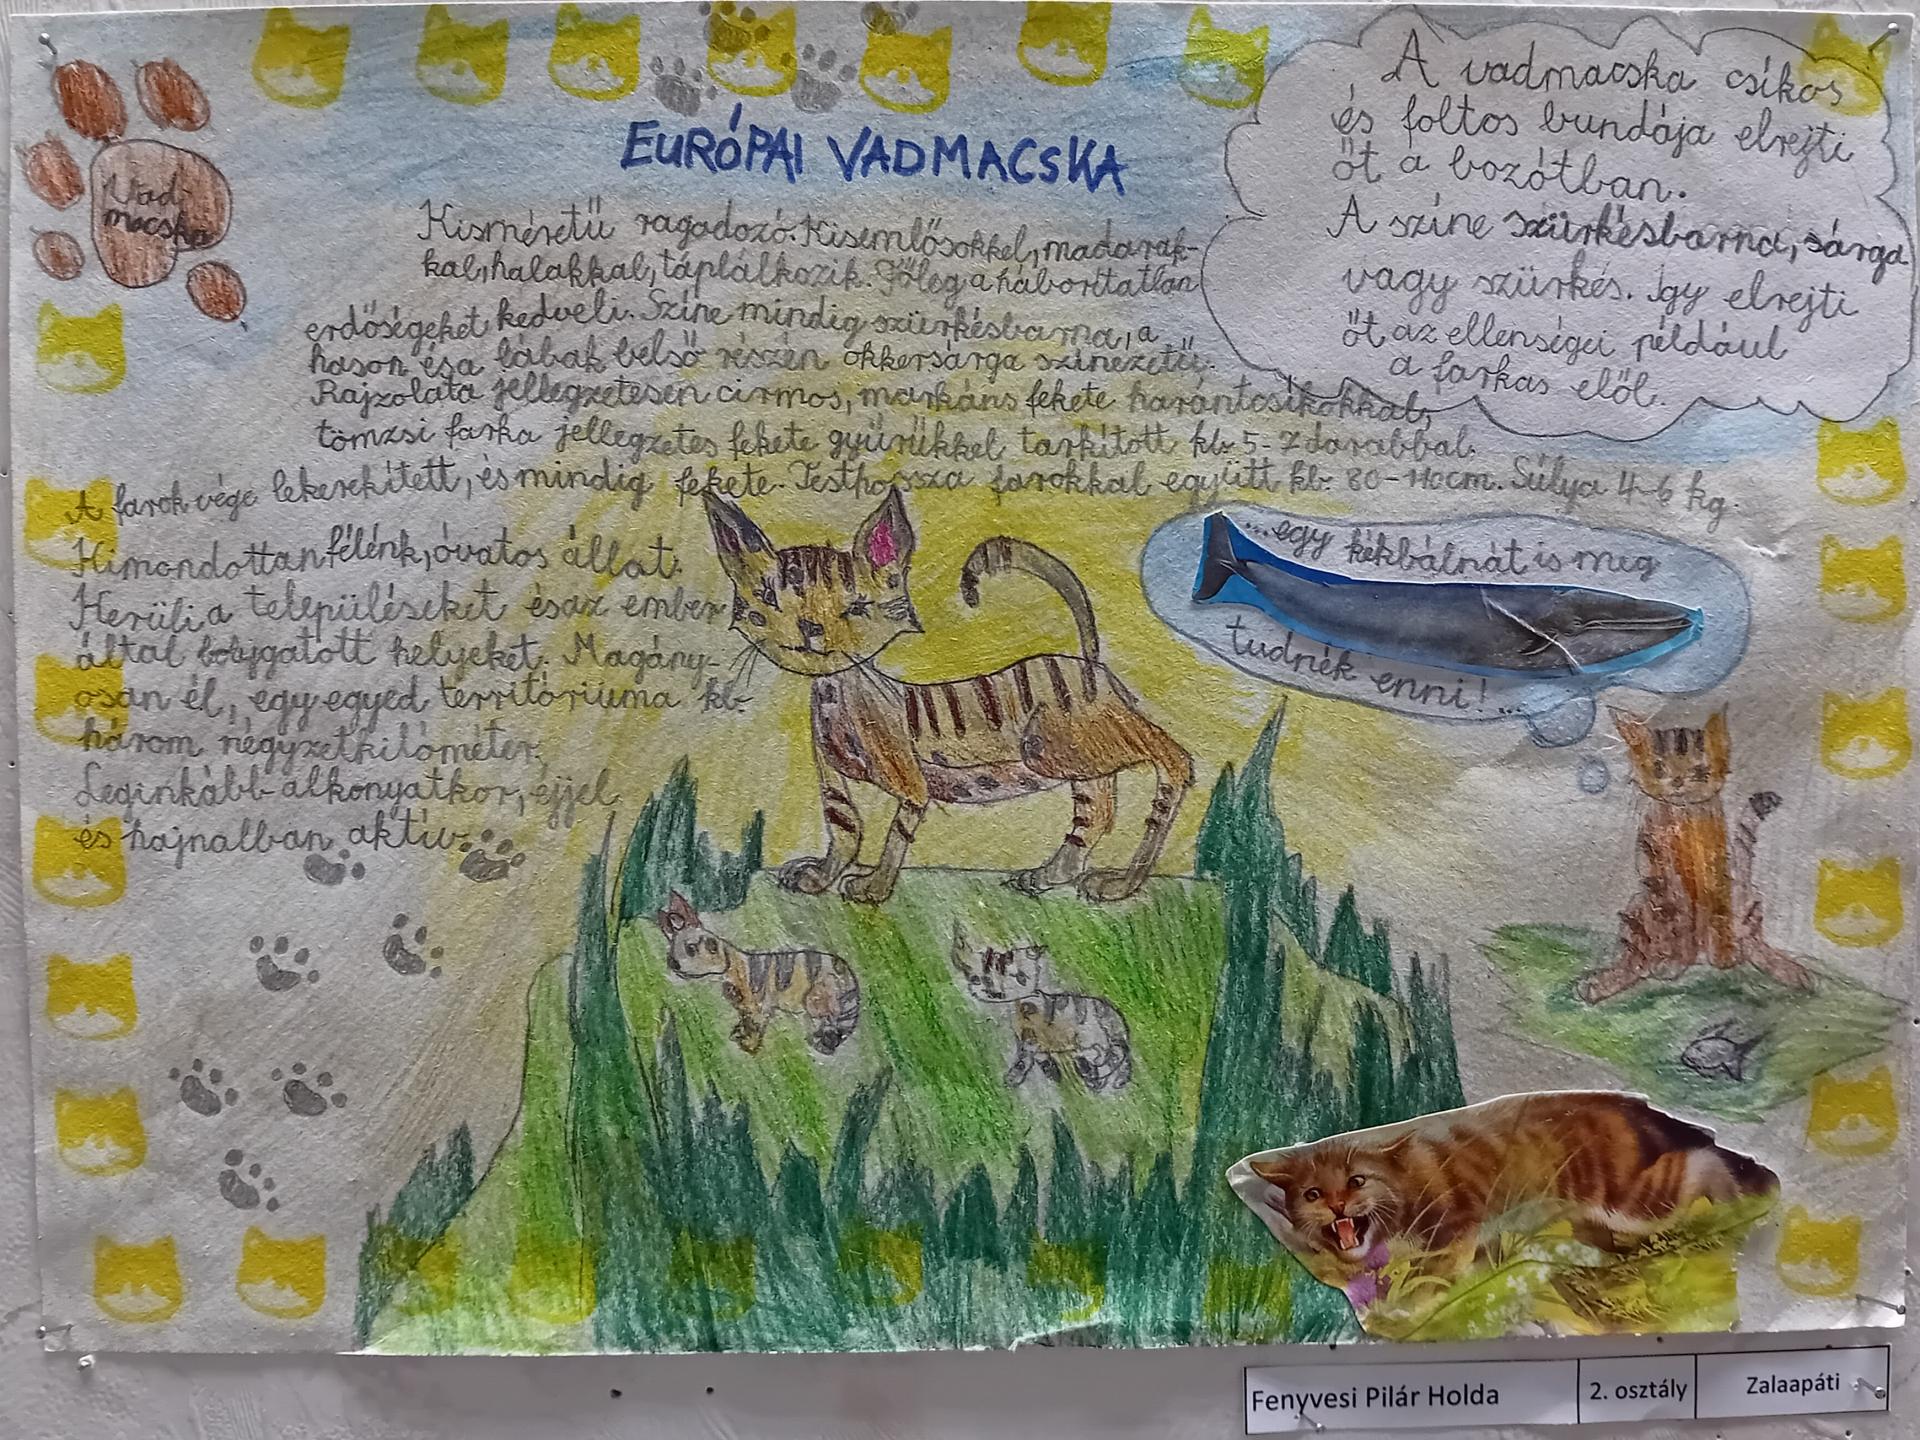 EURÓPAI VADMACSKA
Vad-
macska
Kisméretű ragadozó. Kisemlősökkel, madarak-
kal, halakkal, táplálkozik. Főleg a háborítatlan
erdőségeket kedveli. Színe mindig szürkésbarna, a
hason ésa lábak belső részén okkersárga színezetű.
Rajzolata jellegzetesen cirmos, markáns fekete harántcsíkokkal,
tömzsi farka jellegzetes fekete gyűrűkkel tarkított kb. 5-7 darabbal.
A farok vége lekerekített, és mindig fekete. Testhossza farokkal együtt kb. 80-110cm. Súlya 4-6 kg.
Kimondottan félénk, óvatos állat.
Kerüli a településeket ésaz ember
által bolygatott helyeket. Magány-
osan él, egy egyed territóriuma kb.
három négyzetkilóméter.
Leginkább alkonyatkor, éjjel
és hajnalban aktív.
A vadmacska csíkos
és foltos bundája elrejti
őt a bozótban.
A színe szürkésbarna, sárga
vagy szürkés. Így elrejti
őt az ellenségei például
a farkas elől.
...egy kékbálnát is meg
tudnék enni!...
Fenyvesi Pilár Holda
2. osztály
Zalaapáti